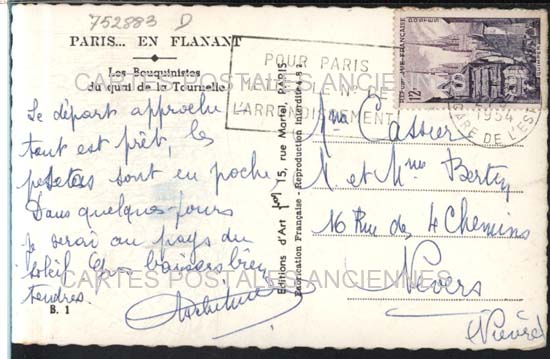 752883 D
PARIS... EN FLANANT
Les Bouquinistes
du quai de la Tournelle
Le départ approche
tout est prêt, les
pesetas sont en poche
Dans quelques jours
je serai au pays du
soleil. Gros baisers bien
tendres.
B. 1
Editions d'Art 15, rue Martel, PARIS
Fabrication Française - Reproduction Interdite
POUR PARIS
MENTIONNEZ LE N° DE
L'ARRONDISSEMENT
FRANÇAISE
POSTES
12F
QUIMPER
1954
GARE DE L'EST
Cassier
M. et Mme Bertin
16 Rue des 4 Chemins
Nevers
(Nièvre)
CARTES POSTALES ANCIENNES
CARTES POSTALES ANCIENNES